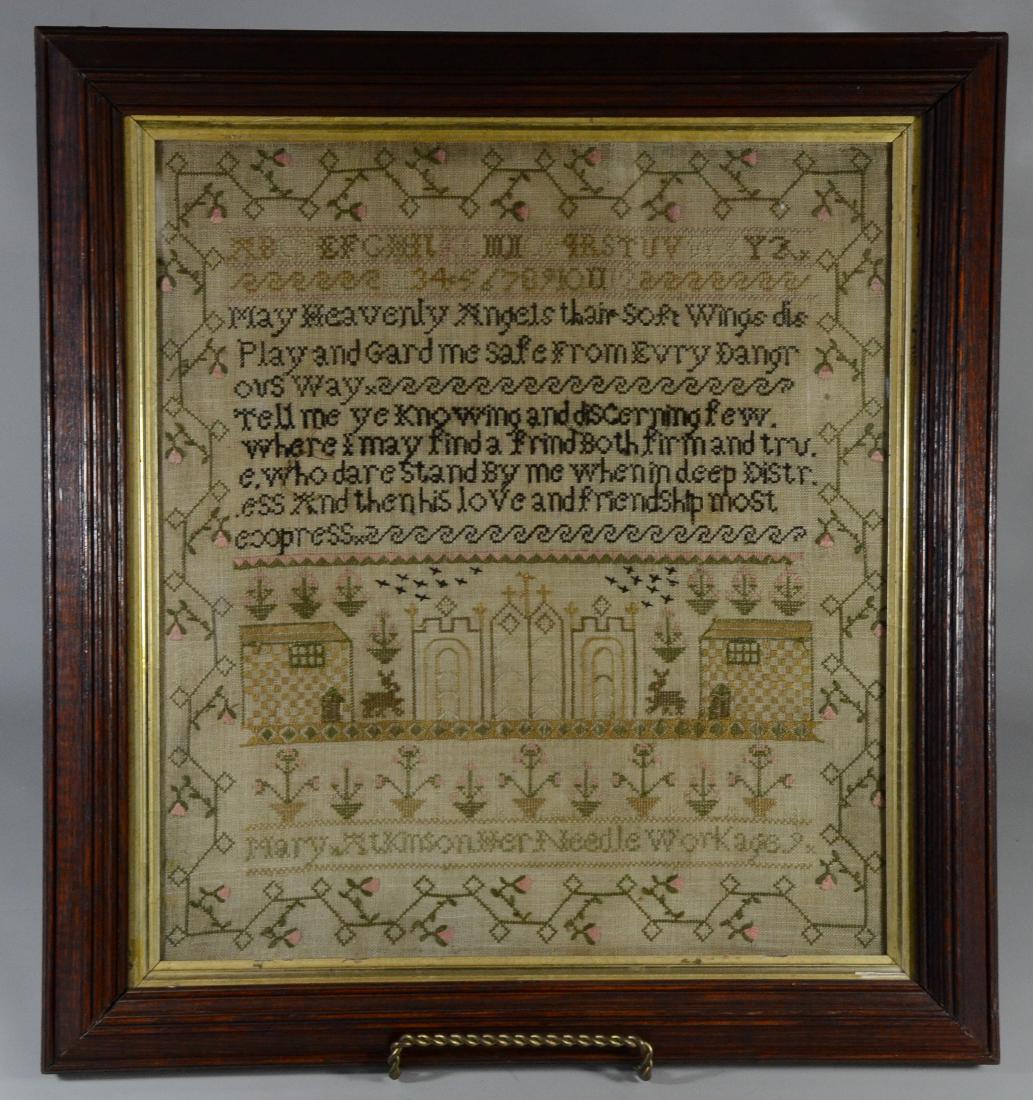 AB EFGHI RSTUV YZ
34567891011
May Heavenly Angels thair Soft Wings dis
Play and Gard me Safe From Evry Dangr
ous Way
Tell me ye Knowing and discerning few.
where I may find a frind Both firm and tru.
e. Who dare Stand By me when in deep Distr.
.ess And then his love and friendship most
express
Mary Atkinson Her Needle Work age 9